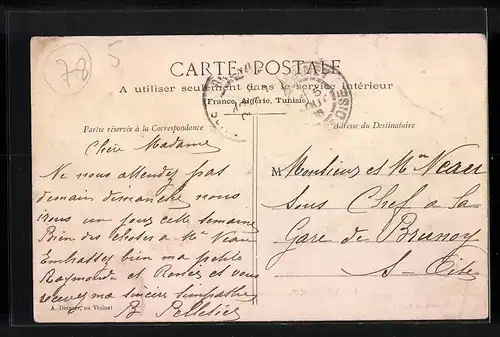 78
5
CARTE POSTALE
A utiliser seulement dans le service intérieur
(France, Algérie, Tunisie)
Partie réservée à la Correspondance
Adresse du Destinataire
Chère Madame
Ne nous attendez pas
demain dimanche nous
irons un jour cette semaine
Bien des choses a Mr Neau
Embrassez bien ma petite
Raymonde et Renée et vous
recevez ma sincère simpathie
B Pelletier
A. Drugier, au Vésinet
M Monsieur et Mme Neau
Sous Chef a la
Gare de Brunoy
S-Oise